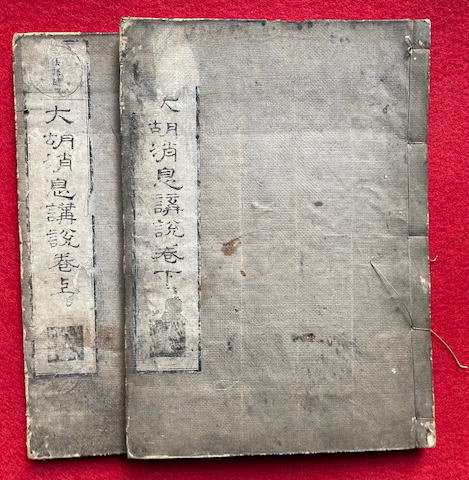 大胡消息講說卷上
大胡消息講說卷下